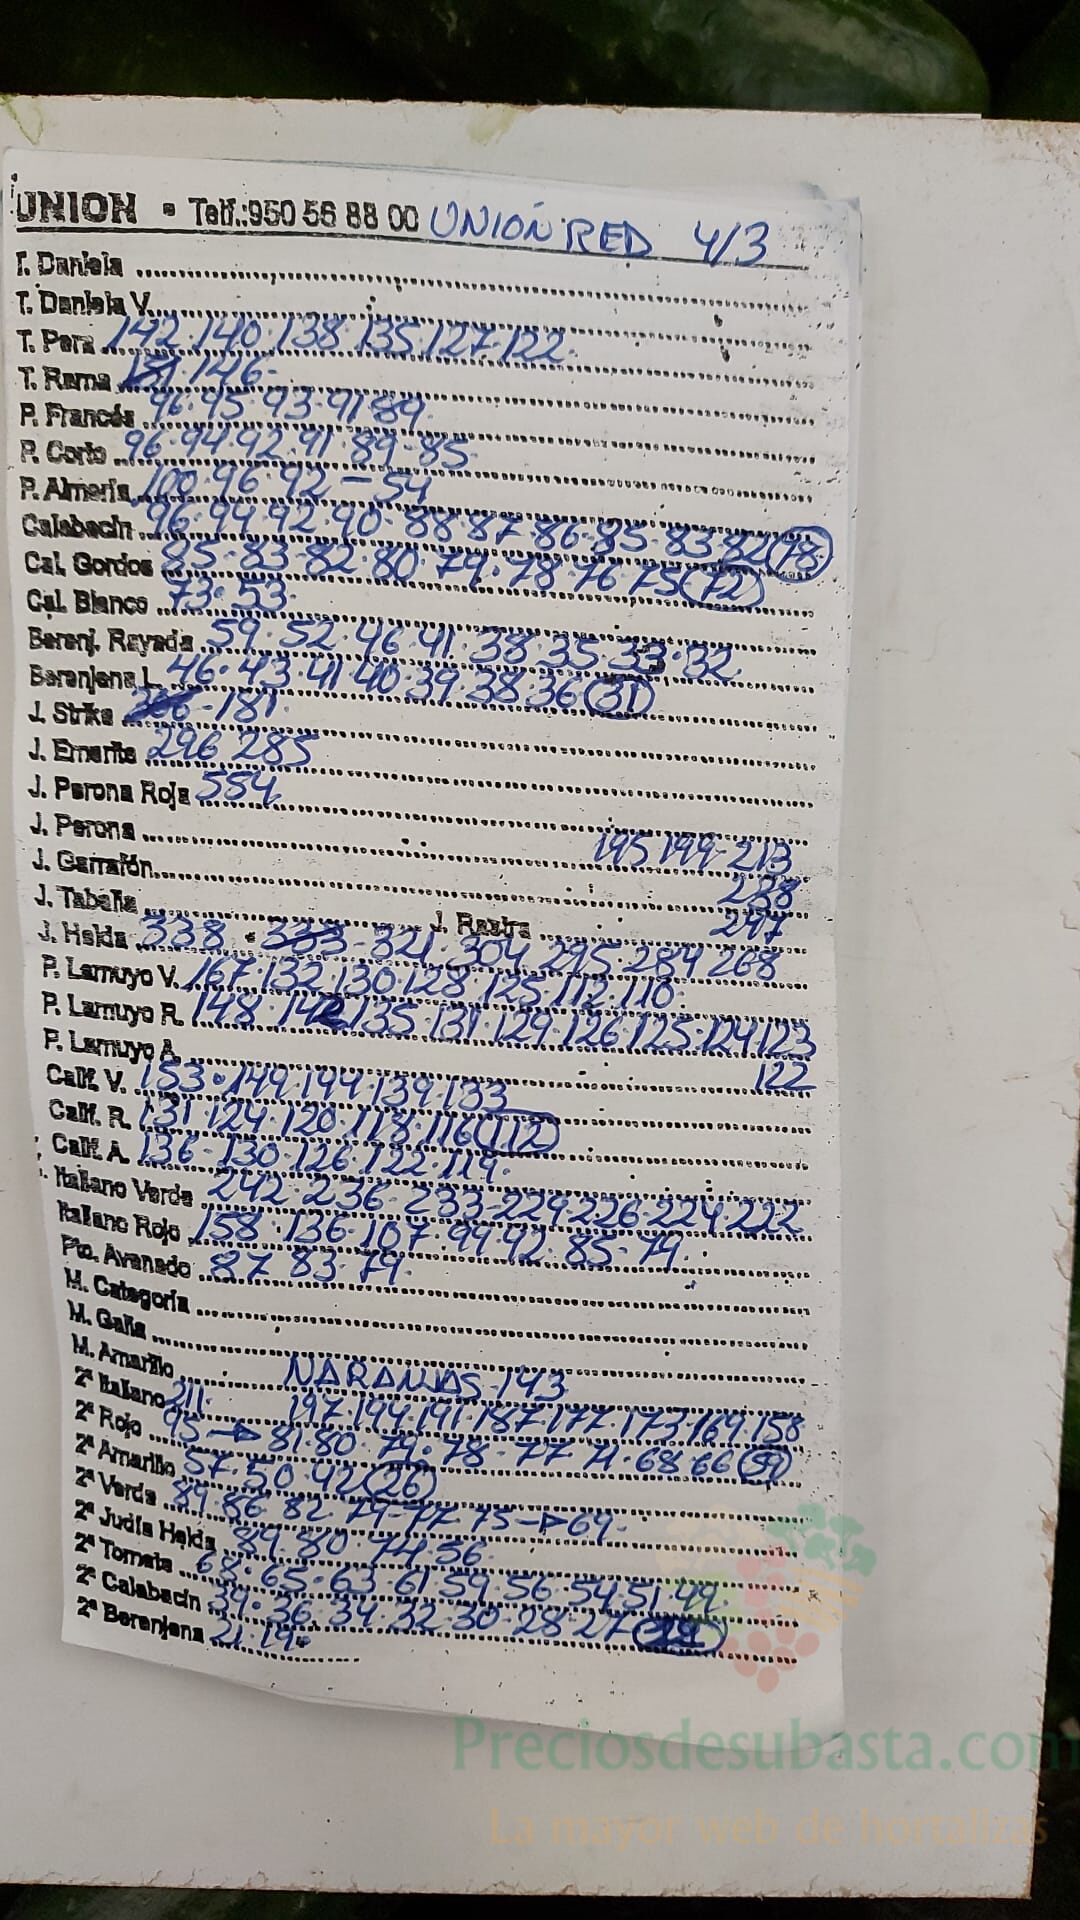 UNION - Telf.:950 56 88 00 UNIÓN RED 4/3
T. Daniela
T. Daniela V.
T. Pera 142·140·138·135·127·122
T. Rama 151·146-
P. Francés 96·95·93·91·89
P. Corto 96·94·92·91·89·85
P. Almería 100·96·92-54
Calabacín 96·94·92·90·88·87·86·85·83·82(78)
Cal. Gordos 85·83·82·80·79·78·76·75(72)
Cal. Blanco 73·53
Berenj. Rayada 59·52·46·41·38·35·33·32
Berenjena L. 46·43·41·40·39·38·36(31)
J. Strike -181
J. Emerite 296 285
J. Perona Roja 554
J. Perona 195 199-213
J. Garrafón 238
J. Tabella J. Rastra 247
J. Helda 338·333-321·304·295·284 268
P. Lamuyo V. 167·132·130·128·125·112·110
P. Lamuyo R. 148·142·135·131·129·126·125·124·123
P. Lamuyo A. 122
Calif. V. 153·149·144·139·133
Calif. R. 131·124·120·118·116(112)
Calif. A. 136-130·126·122·119
Italiano Verde 242·236·233-229·226·224·222
Italiano Rojo 158·136·107·99·92·85·79
Pto. Avanado 87·83·79
M. Categoría
M. Galia
M. Amarillo NARANJAS-143
2ª Italiano 211· 197·194·191·187·177·173·169·158
2ª Rojo 95→81·80·79·78-77 71·68·66(59)
2ª Amarillo 57·50·42(26)
2ª Verde 89·86·82·79-77·75→69-
2ª Judía Helda 89·80·74·56
2ª Tomate 68·65·63·61·59·56·54·51·49
2ª Calabacín 39·36·34·32·30·28·27
2ª Berenjena 21·19·
Preciosdesubasta.com
La mayor web de hortalizas